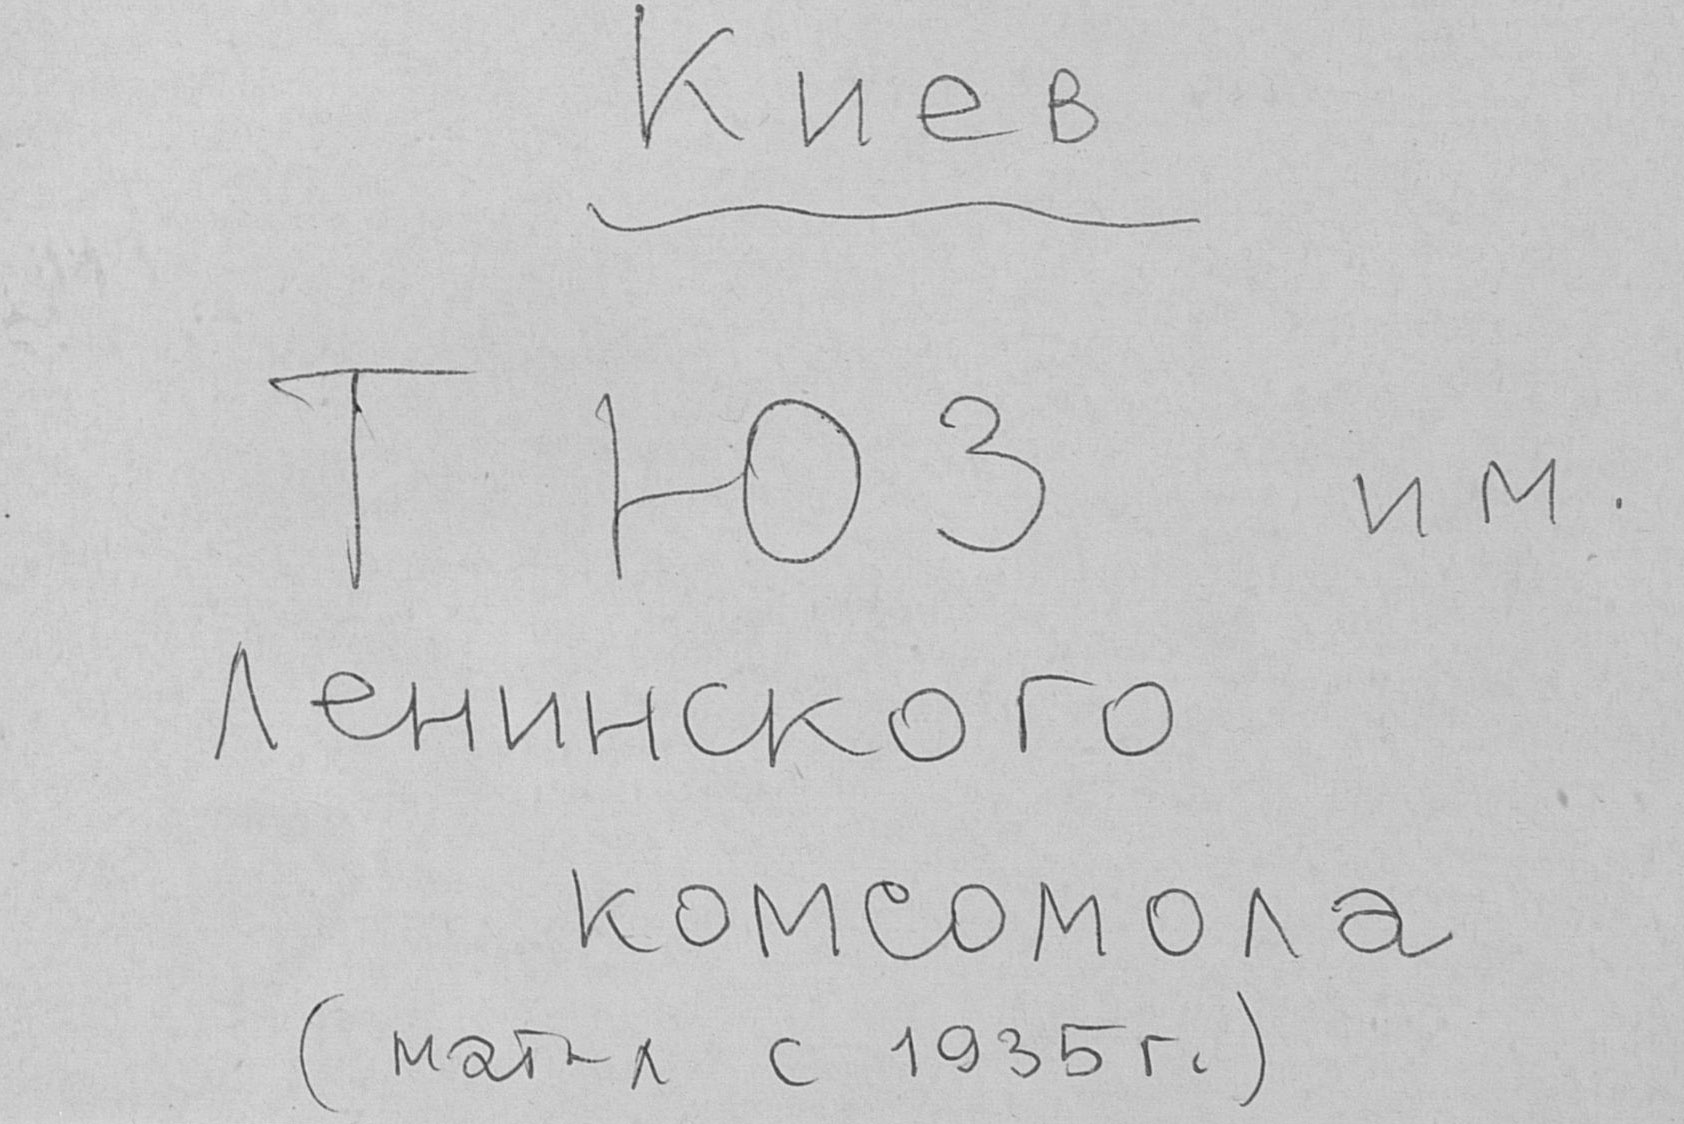 Киев
ТЮЗ им.
Ленинского
комсомола
(мат-л с 1935г.)